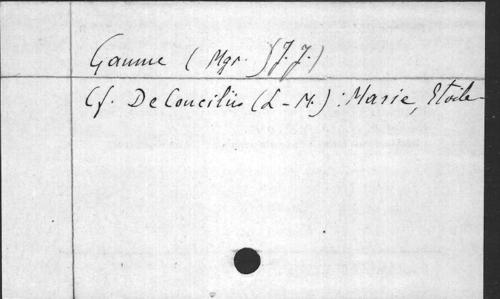 Gaume (Mgr.) (J.J.)
Cf. De Conciliis (L-M.) : Marie, Etoile